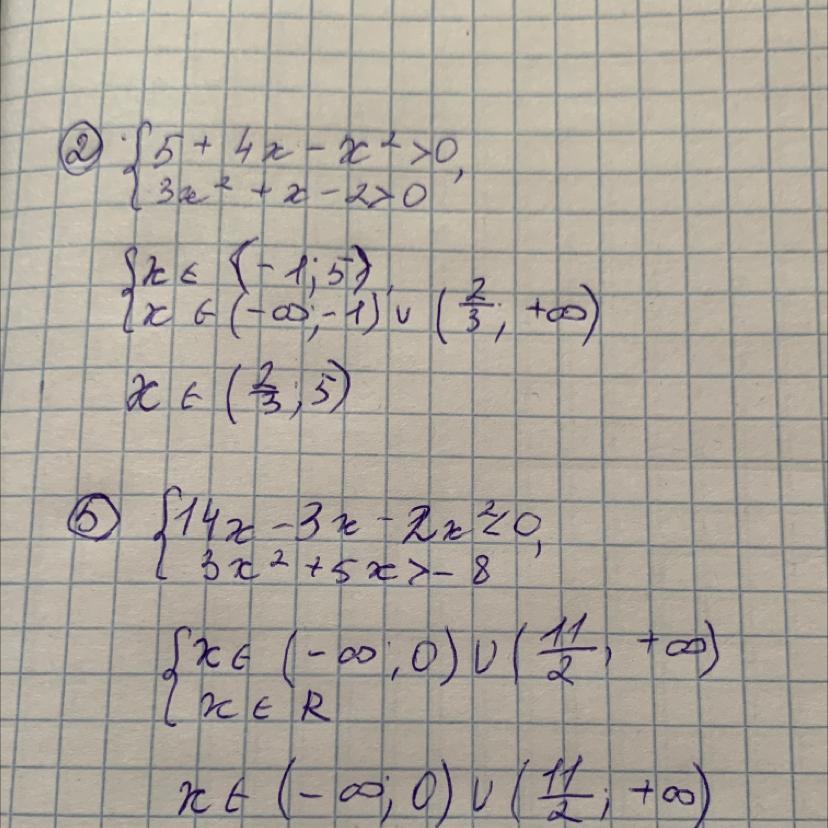 ② { 5 + 4x - x² > 0,
3x² + x - 2 > 0
{ x ∈ (-1; 5),
x ∈ (-∞; -1) ∪ (2/3; +∞)
x ∈ (2/3; 5)
⑤ { 14x - 3x - 2x² < 0,
3x² + 5x > - 8
{ x ∈ (-∞; 0) ∪ (11/2; +∞)
x ∈ R
x ∈ (-∞; 0) ∪ (11/2; +∞)